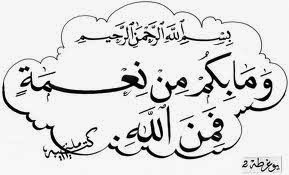 بِسْمِ اللَّهِ الرَّحْمَنِ الرَّحِيمِ
وَمَا بِكُمْ مِنْ نِعْمَةٍ
فَمِنَ اللَّهِ
بوغرطة 2